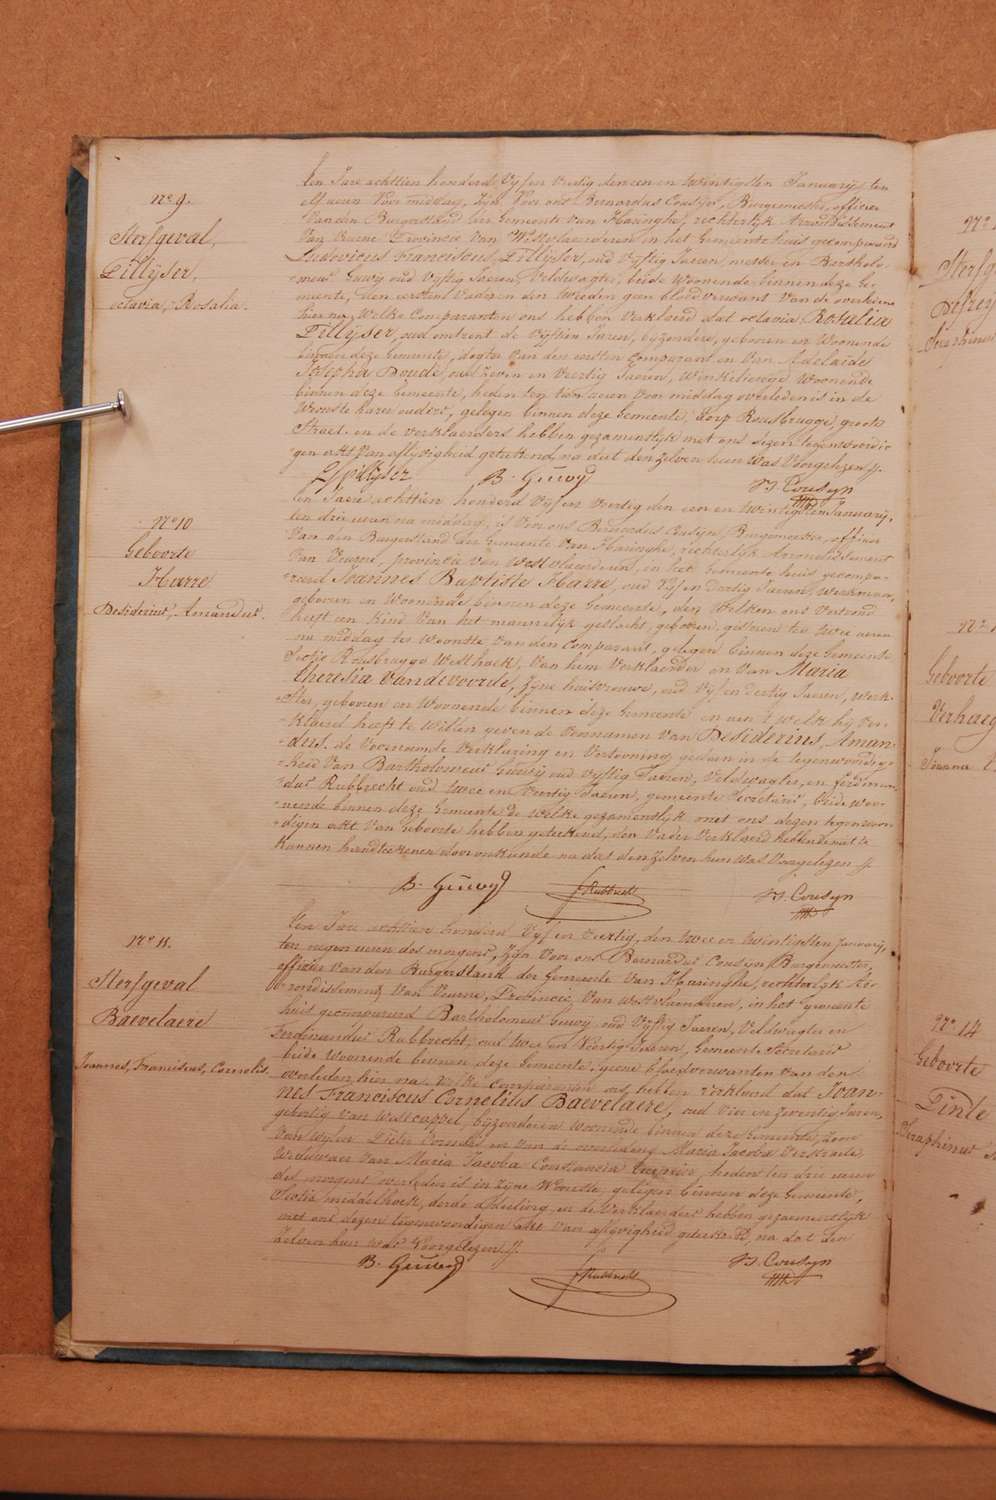 nº 9.
Sterfgeval,
Pillyser,
octavia, Rosalia.
Ten Jare achttien honderd Vyf en Veertig den een en twintigsten January, ten
elf uren Voor middag, Zyn Voor ons Bernardus Cousyn, Burgemeester, officier
Van den Burgerstand der Gemeente van Haringhe, rechterlyk Arrondissement
Van Veurne Provincie Van Westvlaenderen in het Gemeente huis gecompareerd
Ludovicus Franciscus, Pillyser, oud Vyftig Jaeren, en Bartholo-
meus Geuwy oud Vyftig Jaeren, Veldwagter, beide Woonende binnen deze Ge-
meente, den eersten Vader en den tweeden geen bloedverwant Van de overledene
hier na, Welke Comparanten ons hebben Verklaerd dat octavia Rosalia
Pillyser, oud omtrent de Vyftien Jaren, byzondere, geboren en Woonende
binnen deze Gemeente, dogter Van den eersten Comparant en Van Adelaide
Josepha Doude, oud Zeven en Veertig Jaeren, Winkelierege Woonende
binnen deze Gemeente, heden ten uren Voor middag overleden is in de
Woonste harer ouders, gelegen binnen deze Gemeente, dorp Rousbrugge, groote
Straet, en de Verklaerders hebben gezamentlyk met ons dezen tegenwoordi-
gen akt Van aflyvigheid geteekend, na dat den zelven hun Was Voorgelezen //.
Pillyser B. Geuwy B. Cousyn
nº 10
Geboorte
Harre
Desiderius, Amandus.
Ten Jaere achttien honderd Vyf en Veertig den een en twintigsten January,
ten drie uren na middag, is Voor ons Bernardus Cousyn, Burgemeester, officier
Van den Burgerstand der Gemeente Van Haringhe, rechterlyk Arrondissement
Van Veurne, provincie van Westvlaenderen, in het Gemeente huis gecompa-
reerd Joannes Baptiste Harre, oud Vyf en dertig Jaeren, Werkman,
geboren en Woonende binnen deze Gemeente, den Welken ons Vertoond
heeft een kind Van het mannelyk geslacht, geboren, gisteren ten twee uren
na middag ter Woonste Van den Comparant, gelegen binnen deze Gemeente
Sectie Rousbrugge Westhoek, Van hem Verklaerder en Van Maria
Theresia Vandevoorde, Zyne huisvrouwe, oud Vyf en dertig Jaeren, Werk-
ster, geboren en Woonende binnen deze Gemeente en aen 't welk hy Ver-
klaerd heeft te Willen geven de Voornamen Van Desiderius, Aman-
dus, de Voornoemde Verklaring en Vertooning gedaen in de tegenwoordig-
heid Van Bartholomeus Geuwy oud Vyftig Jaeren, Veldwagter, en Ferdinan-
dus Rubbrecht oud twee en Veertig Jaeren, gemeente Secretaris, beide woo-
nende binnen deze Gemeente de Welke gezamentlyk met ons dezen tegenwoor-
digen akt Van Geboorte hebben geteekend, den Vader Verklaerd hebbende niet te
kunnen handteekenen door onkunde na dat den zelven hun Was Voorgelezen //.
B. Geuwy F. Rubbrecht B. Cousyn
nº 11.
Sterfgeval
Baevelaere
Joannes, Franciscus, Cornelis.
Ten Jare achttien honderd Vyf en Veertig, den twee en twintigsten January,
ten negen uren des morgens, Zyn Voor ons Bernardus Cousyn Burgemeester,
officier van den Burgerstand der Gemeente Van Haringhe, rechterlyk Ar-
rondissement Van Veurne, Provincie, Van Westvlaenderen, in het Gemeente
huis gecompareerd Bartholomeus Geuwy oud Vyftig Jaeren, Veldwagter en
Ferdinandus Rubbrecht, oud twee en Veertig Jaeren, Gemeente Secretaris
beide Woonende binnen deze Gemeente, geene bloedverwanten Van den
overleden hier na, Welke Comparanten ons hebben Verklaerd dat Joan-
nes Franciscus Cornelius Baevelaere, oud Vier en Zeventig Jaren,
geboortig van Westcappel, byzonderen Woonende binnen deze Gemeente, Zoon
Van Wylen Pieter Cornelis en Van de overledene Maria Jacoba Verstraete,
Weduwaer Van Maria Jacoba Constancia, heden ten drie uren
des morgens overleden is in Zyne Woonste, gelegen binnen deze Gemeente,
Sectie middelhoek, derde afdeeling, en de Verklaerders hebben gezamentlyk
met ons dezen tegenwoordigen akt Van aflyvigheid geteekend, na dat den
Zelven hun was Voorgelezen //.
B. Geuwy F. Rubbrecht B. Cousyn
Sterfg
Geboorte
Verhaeg
nº 14
Geboorte
Pinte
Seraphinus